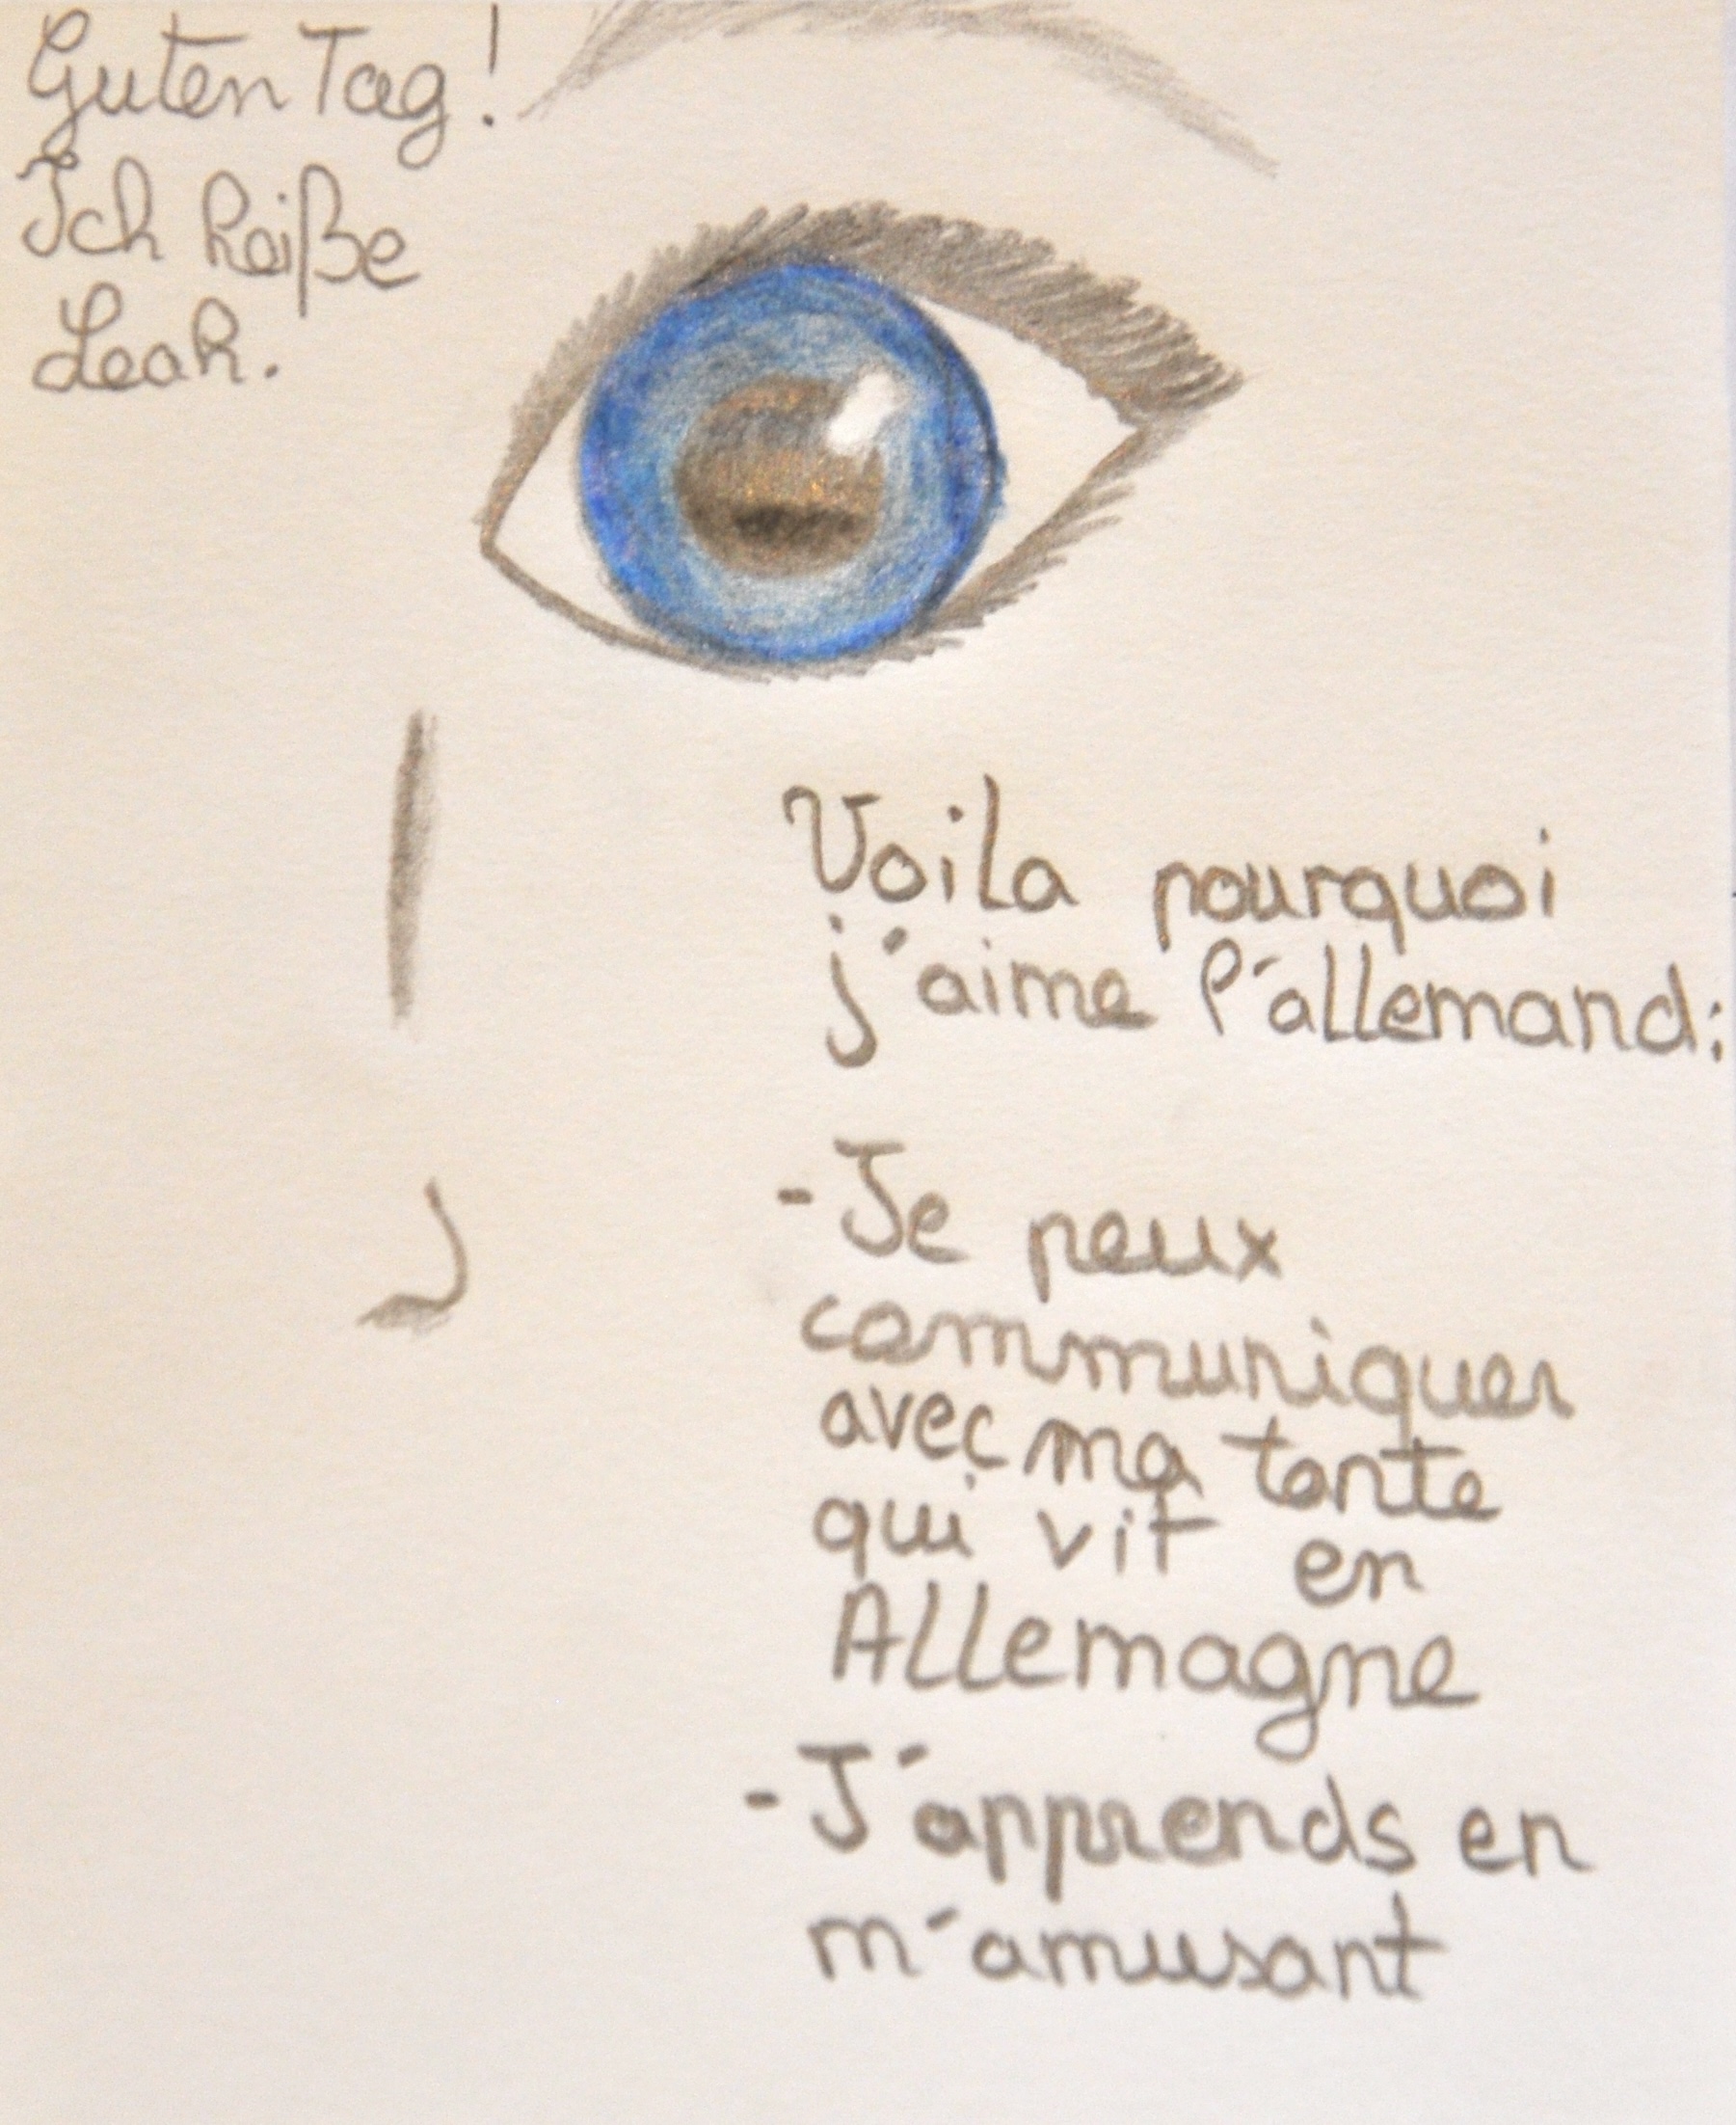 Guten Tag!
Ich heiße
Leah.
Voila pourquoi
j'aime l'allemand:
-Je peux
communiquer
avec ma tante
qui vit en
Allemagne
-J'apprends en
m'amusant